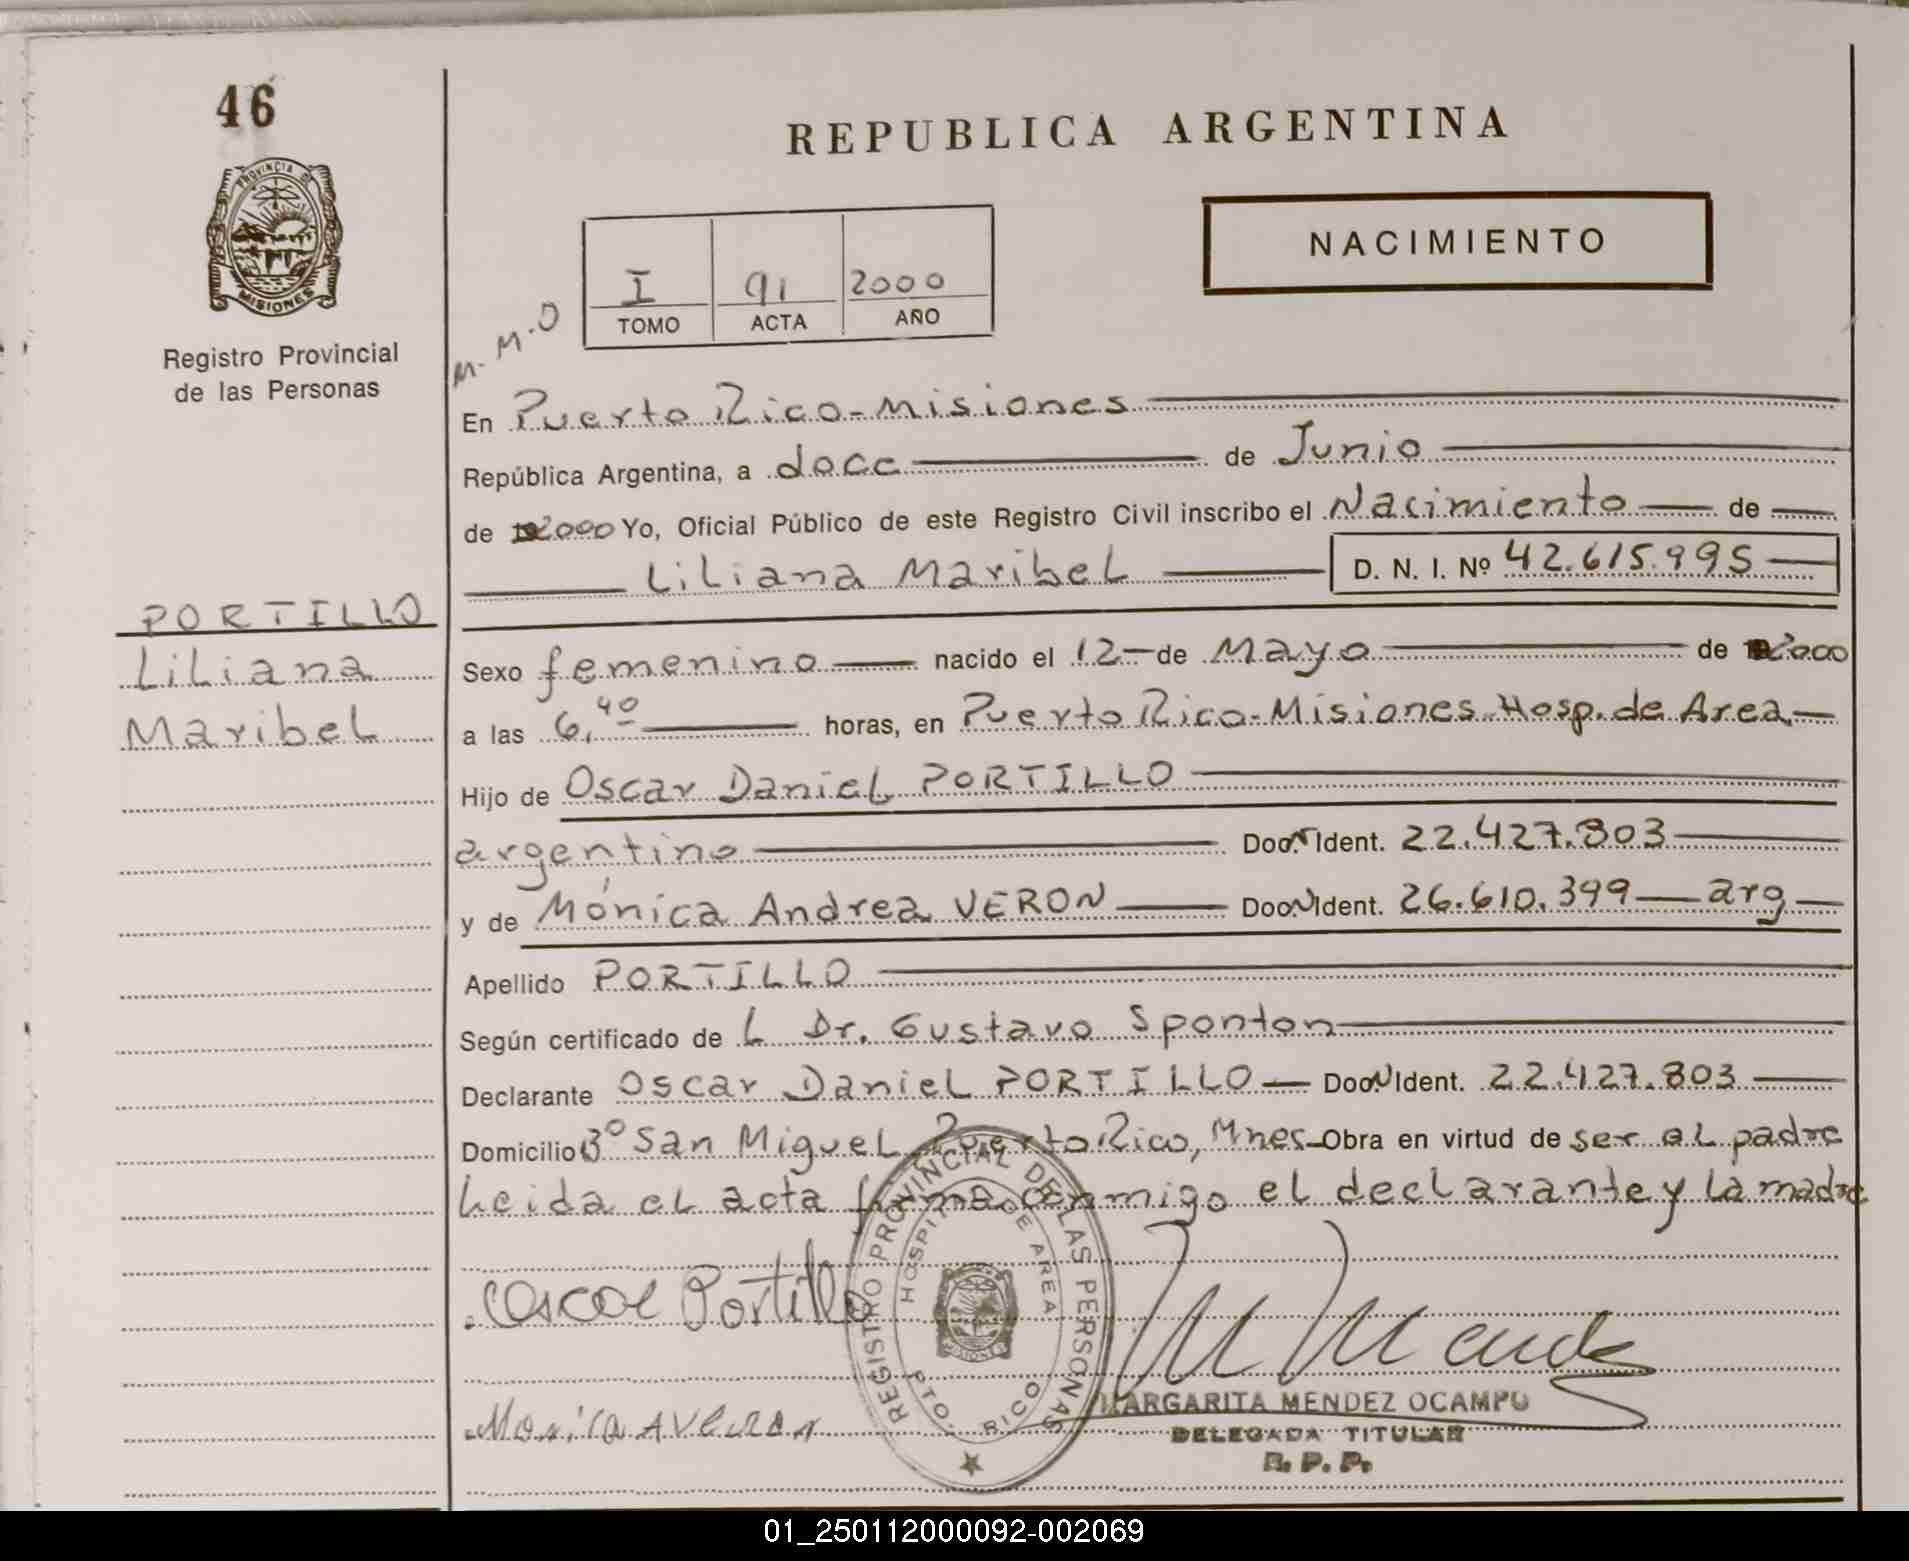 46
PROVINCIA DE
MISIONES
Registro Provincial
de las Personas
REPUBLICA ARGENTINA
NACIMIENTO
I 91 2000
TOMO ACTA AÑO
M. M. O
En Puerto Rico - Misiones
República Argentina, a doce de Junio
de 2000 Yo, Oficial Público de este Registro Civil inscribo el Nacimiento de
Liliana Maribel D. N. I. Nº 42.615.995
PORTILLO
Liliana
Maribel
Sexo femenino nacido el 12 de Mayo de 2000
a las 6,40 horas, en Puerto Rico - Misiones Hosp. de Area
Hijo de Oscar Daniel PORTILLO
argentino Doc. Ident. 22.427.803
y de Mónica Andrea VERON Doc. Ident. 26.610.399 arg
Apellido PORTILLO
Según certificado de L Dr. Gustavo Sponton
Declarante Oscar Daniel PORTILLO Doc. Ident. 22.427.803
Domicilio Bº San Miguel Puerto Rico, Mnes Obra en virtud de ser el padre
Leida el acta firma conmigo el declarante y la madre
REGISTRO PROVINCIAL DE LAS PERSONAS
HOSPITAL DE AREA
MISIONES
PTO. RICO
Oscar Portillo
MARGARITA MENDEZ OCAMPO
DELEGADA TITULAR
R. P. P.
01_250112000092-002069